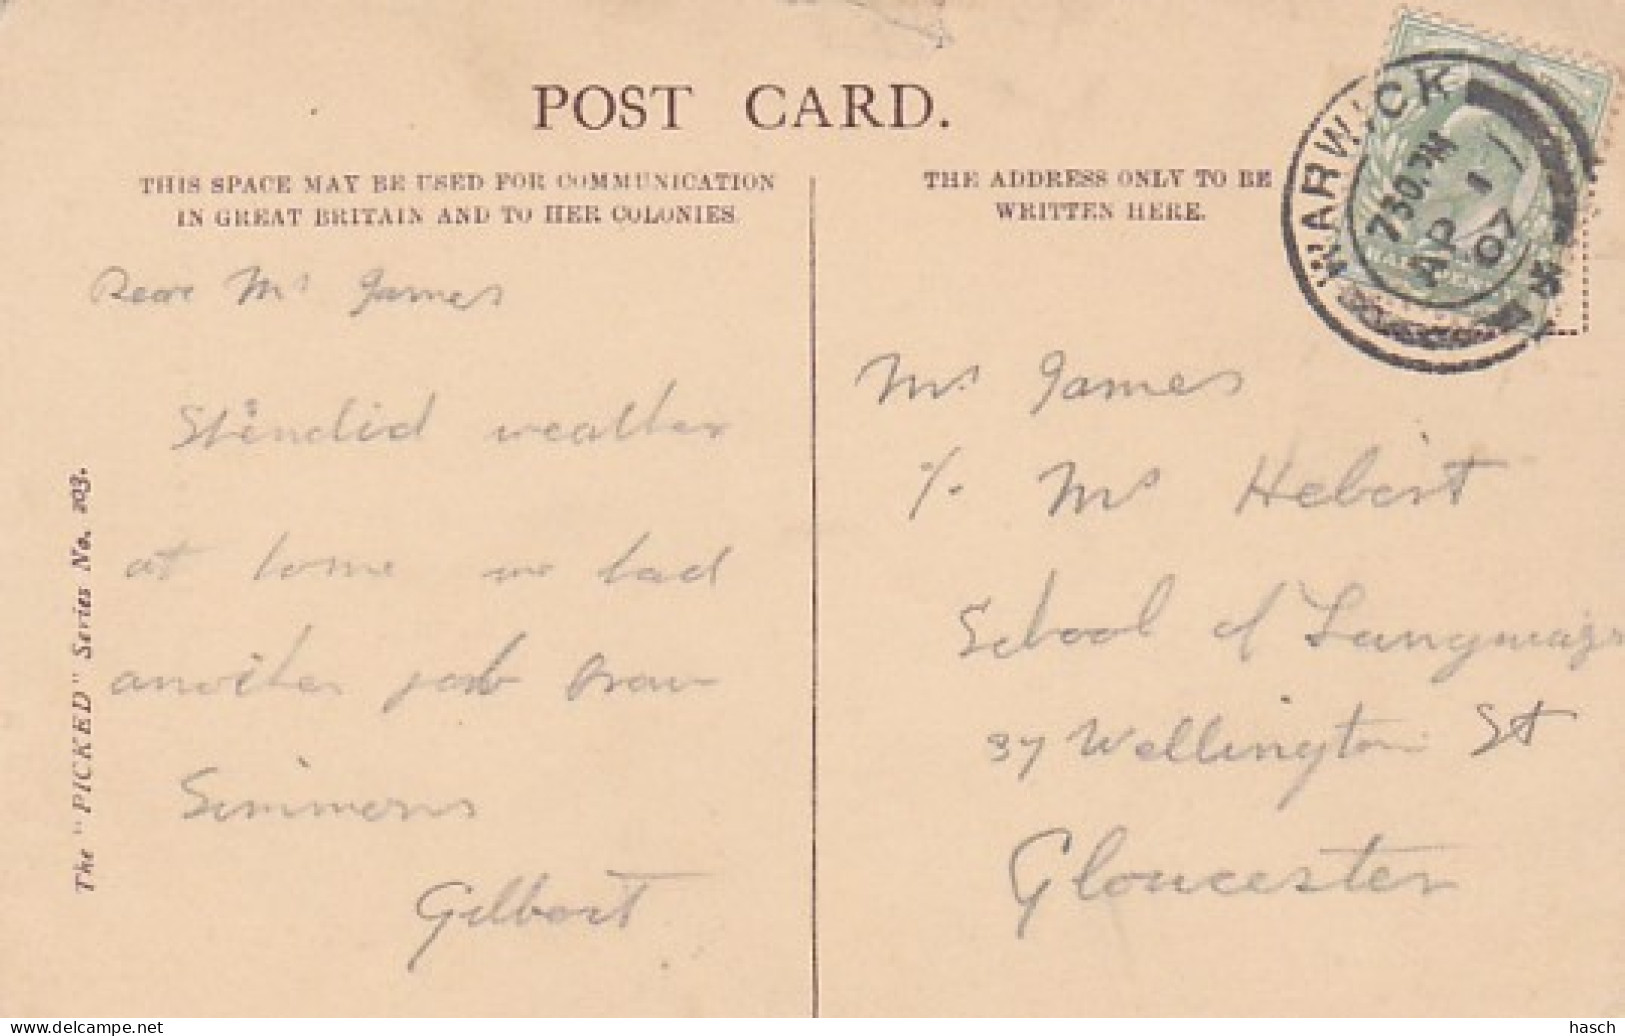 POST CARD.
THIS SPACE MAY BE USED FOR COMMUNICATION
IN GREAT BRITAIN AND TO HER COLONIES.
THE ADDRESS ONLY TO BE
WRITTEN HERE.
WARWICK
7 30. PM
AP 1
07
Dear Mr James
weather
at home we had
another from
Simmons
Gilbert
Mr James
c/o Mrs Hebert
School of Languages
37 Wellington St
Gloucester
The "PICKED" Series No. 203.
www.delcampe.net
hasch